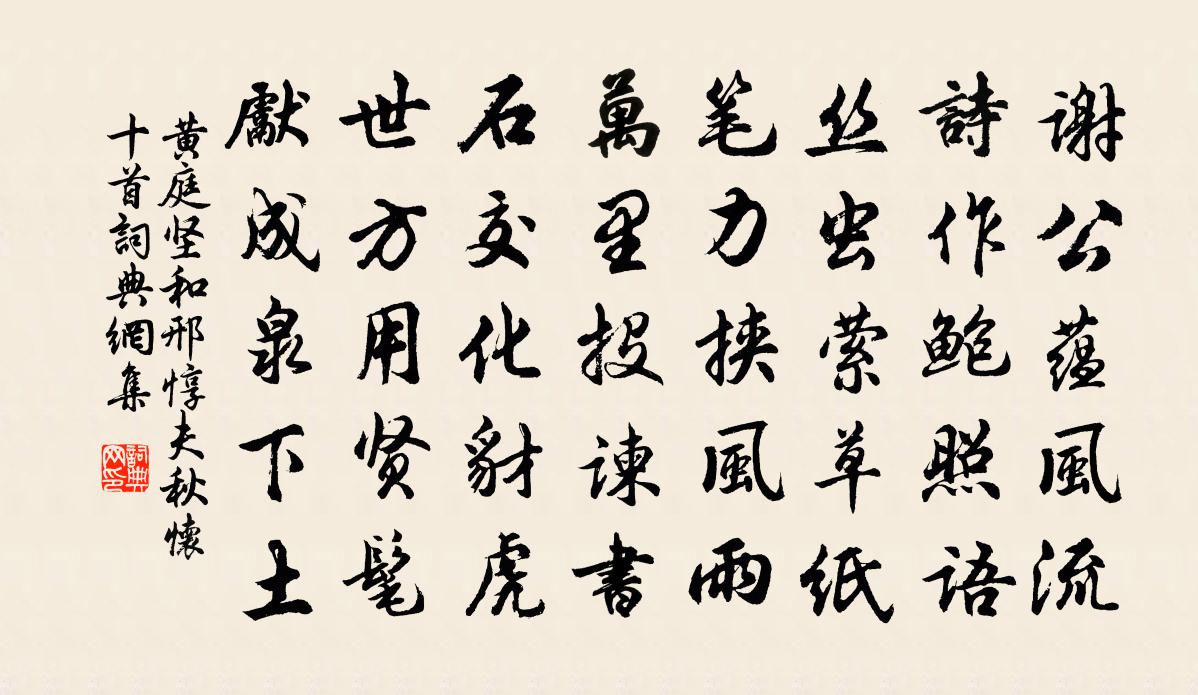 謝公蘊風流
詩作鮑照語
丝虫萦草紙
笔力挟風雨
萬里投諫書
石交化豺虎
世方用贤髦
獻成泉下土
黄庭坚和邢惇夫秋懷
十首詞典網集
詞典
网印